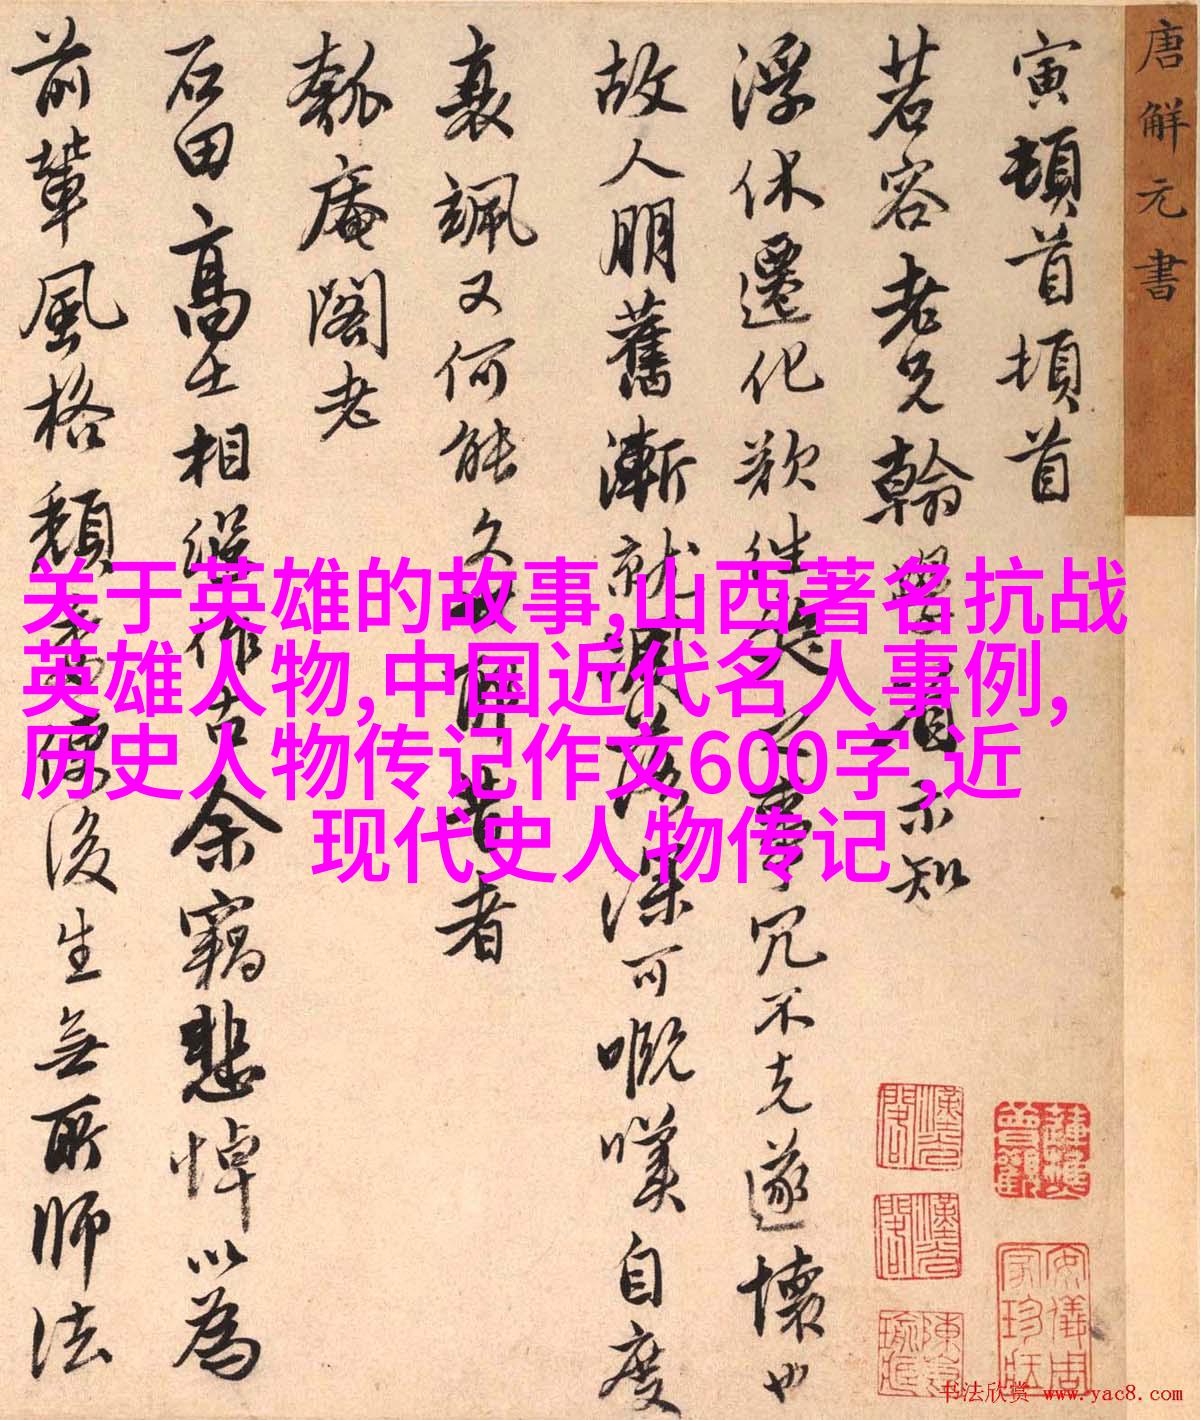 唐解元書
寅頓首頓首
茗容老兄翰
不知
浮休遷化欲往
冗不克遂懷也
故人朋舊漸就
深可嘅嘆自度
衰颯又何能久
者
瓠庵閣老
石田高士相
作古余竊悲悼以為
前輩風格頹
後生無所師法
关于英雄的故事,山西著名抗战
英雄人物,中国近代名人事例,
历史人物传记作文600字,近
现代史人物传记
书法欣赏 www.yac8.com